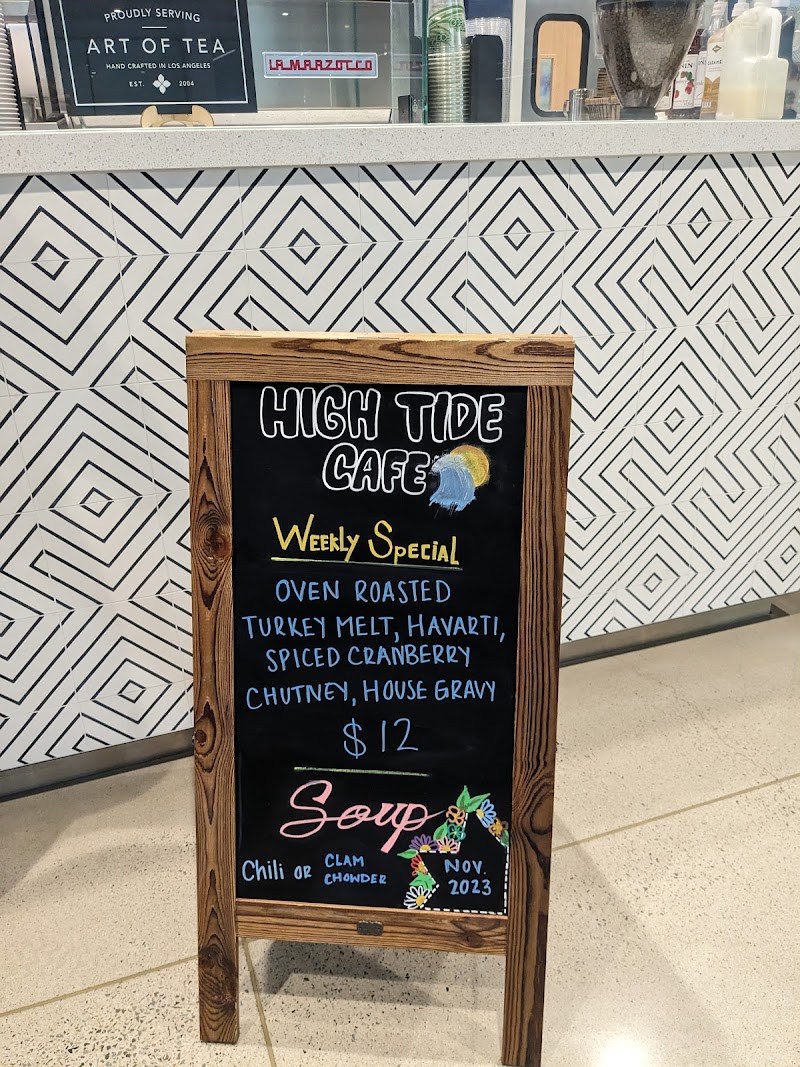 PROUDLY SERVING
ART OF TEA
HAND CRAFTED IN LOS ANGELES
EST. 2004
LA MARZOCCO
HIGH TIDE
CAFE
WEEKLY SPECIAL
OVEN ROASTED
TURKEY MELT, HAVARTI,
SPICED CRANBERRY
CHUTNEY, HOUSE GRAVY
$12
Soup
Chili OR CLAM
CHOWDER
NOV.
2023